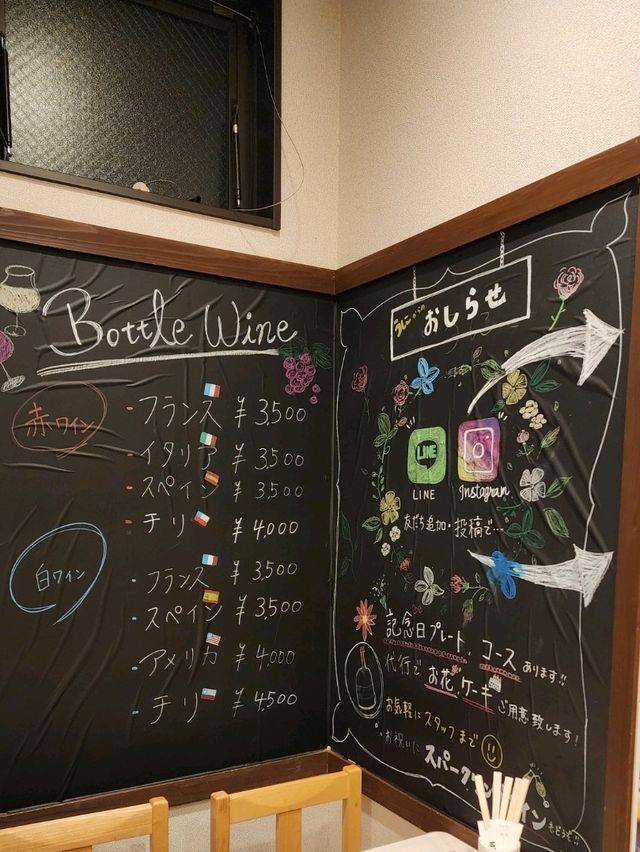 Bottle Wine
赤ワイン
・フランス ¥3,500
・イタリア ¥3,500
・スペイン ¥3,500
・チリ ¥4,000
白ワイン
・フランス ¥3,500
・スペイン ¥3,500
・アメリカ ¥4,000
・チリ ¥4500
おしらせ
LINE
LINE
Instagram
友だち追加・投稿で…
記念日プレート、コースあります!!
代行で お花、ケーキ ご用意致します!
お気軽にスタッフまで
お祝いに
スパーク イン
もどうぞ!!